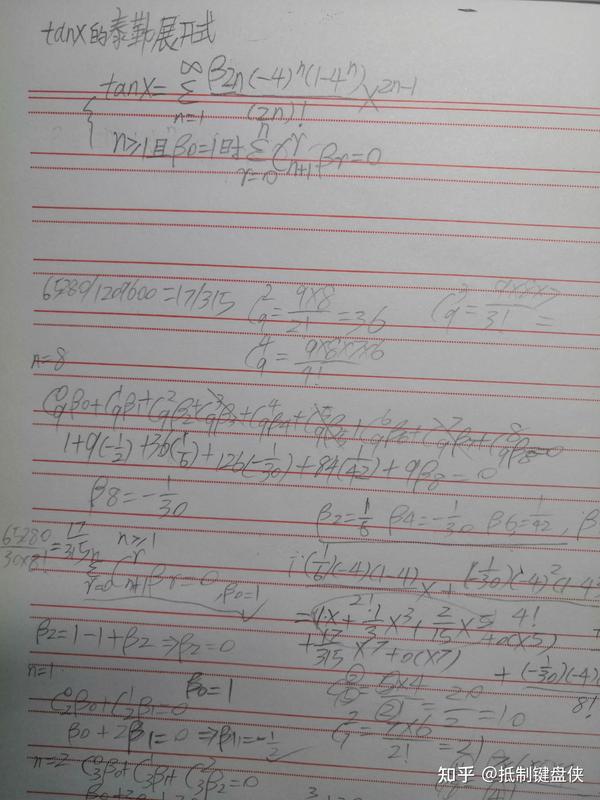 tanx的泰勒展开式
tanx=∑_{n=1}^{∞} \frac{β_{2n}(-4)^n(1-4^n)}{(2n)!} x^{2n-1}
n≥1且β_0=1时∑_{r=0}^{n} C_{n+1}^{r} β_r=0
65280/1209600=17/315
C_9^2=\frac{9×8}{2!}=36
C_9^3=\frac{9×8×7}{3!}=
C_9^4=\frac{9×8×7×6}{4!}
n=8
C_9^0β_0+C_9^1β_1+C_9^2β_2+C_9^3β_3+C_9^4β_4+C_9^5β_5+C_9^6β_6+C_9^7β_7+C_9^8β_8=0
1+9(-\frac{1}{2})+36(\frac{1}{6})+126(-\frac{1}{30})+84(\frac{1}{42})+9β_8=0
β_8=-\frac{1}{30}
β_2=\frac{1}{6} β_4=-\frac{1}{30} β_6=\frac{1}{42},β
\frac{65280}{30×8!}=\frac{17}{315}
n≥1
∑_{r=0}^{n} C_{n+1}^{r} β_r=0,β_0=1
\frac{(\frac{1}{6})(-4)(1-4)}{2!}x+\frac{(-\frac{1}{30})(-4)^2(1-4^2)}{4!}
=1·x+\frac{1}{3}x^3+\frac{2}{15}x^5+o(x^5)
+\frac{17}{315}x^7+o(x^7)
+\frac{(-\frac{1}{30})(-4)}{8!}
β_2=1-1+β_2⇒β_2=0
n=1
β_0=1
C_2^0β_0+C_2^1β_1=0
β_0+2β_1=0⇒β_1=-\frac{1}{2}
C_5^2=\frac{5×4}{2!}=\frac{20}{2}=10
C_7^2=\frac{7×6}{2!}=21
n=2 C_3^0β_0+C_3^1β_1+C_3^2β_2=0
知乎 @抵制键盘侠